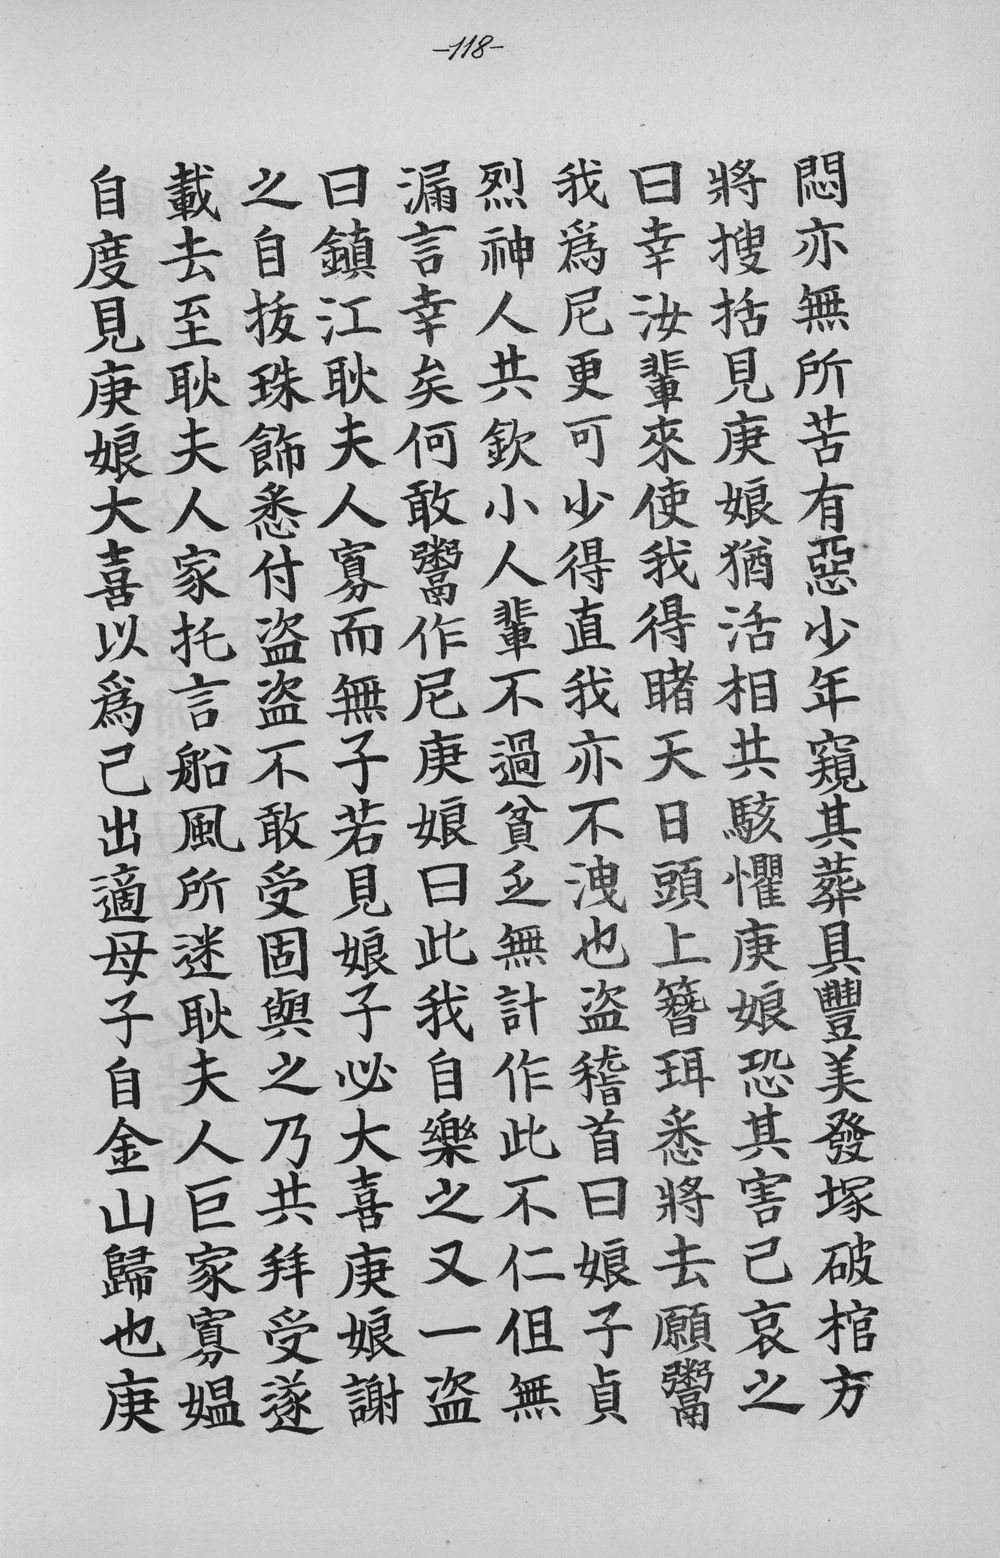 -118-
悶亦無所苦有惡少年窺其葬具豐美發塚破棺方
將搜括見庚娘猶活相共駭懼庚娘恐其害己哀之
曰幸汝輩來使我得睹天日頭上簪珥悉將去願鬻
我爲尼更可少得直我亦不洩也盜稽首曰娘子貞
烈神人共欽小人輩不過貧乏無計作此不仁但無
漏言幸矣何敢鬻作尼庚娘曰此我自樂之又一盜
曰鎮江耿夫人寡而無子若見娘子必大喜庚娘謝
之自拔珠飾悉付盜盜不敢受固與之乃共拜受遂
載去至耿夫人家托言船風所迷耿夫人巨家寡媼
自度見庚娘大喜以爲己出適母子自金山歸也庚